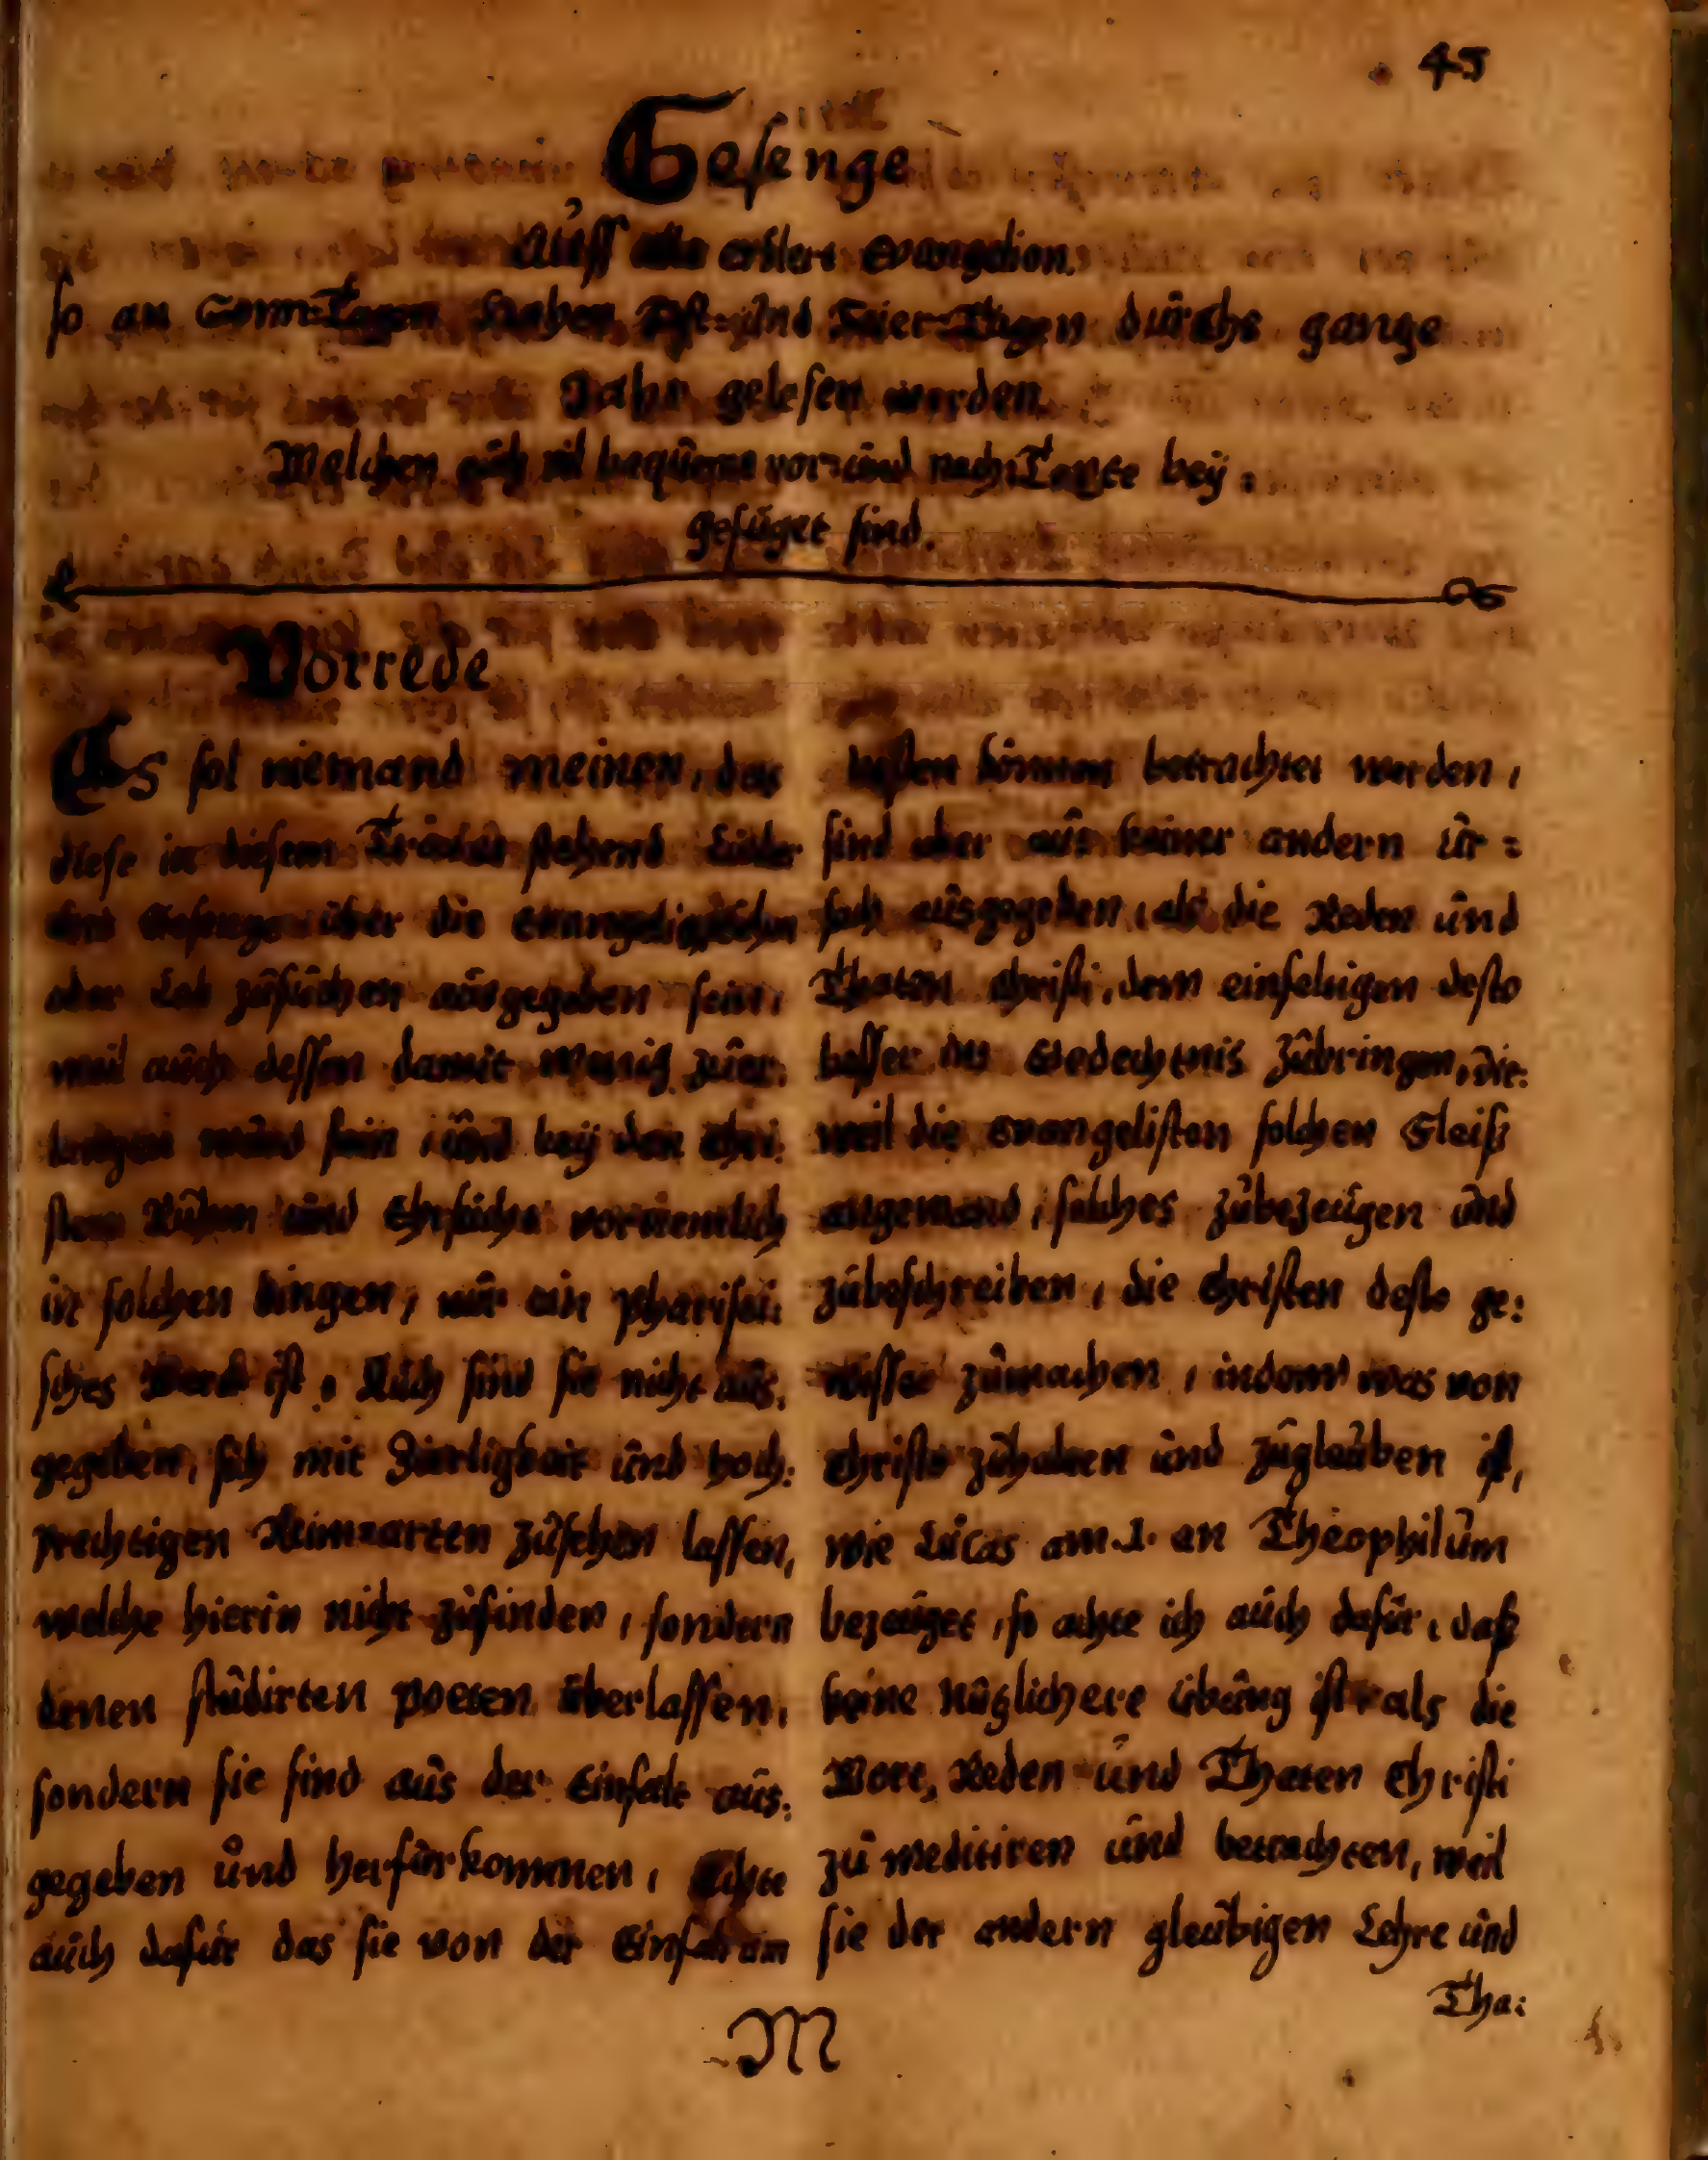 45
Gesenge
Auff alle
so an Sonn-Tagen und Feier-Tagen durchs gantze
Jahr gelesen werden.
Welchen auch vil bequeme vor- und nach-Texte bey:
gefüget sind.
Vorrede
Es sol niemand meinen, das
diese in diesem Tractat stehend Lieder
Gesenge über die
oder Lob zusuchen ausgegeben sein,
weil auch dessen damit wenig zuer:
langen sein, und bey den Chri:
sten Ruhm und Ehrsucht vornemlich
in solchen dingen, nur ein Pharisei:
sches Werck ist. Auch sind sie nicht aus:
gegeben, sich mit Zierligkeit und hoch:
prechtigen Reim-arten zusehen lassen,
welche hierin nicht zufinden, sondern
denen studirten Poeten überlassen,
sondern sie sind aus der Einfalt aus:
gegeben und herfürkommen, Achte
auch dafür das sie von der Einfalt am
besten können betrachtet werden,
sind aber aus keiner andern ur:
sach ausgegeben, als die Reden und
Thaten Christi, dem einfeltigen desto
besser ins Gedechtnis zubringen, die:
weil die Evangelisten solchen Fleiß
angewand, solches zubezeugen und
zubeschreiben, die Christen desto ge:
wisser zumachen, indem was von
Christo zuhalten und zuglauben ist,
wie Lucas am 1. an Theophilum
bezeuget, so achte ich auch dafür, daß
keine nützlichere übung ist als die
Wort, Reden und Thaten Christi
zu meditiren und betrachten, weil
sie der andern gleubigen Lehre und
Tha:
M